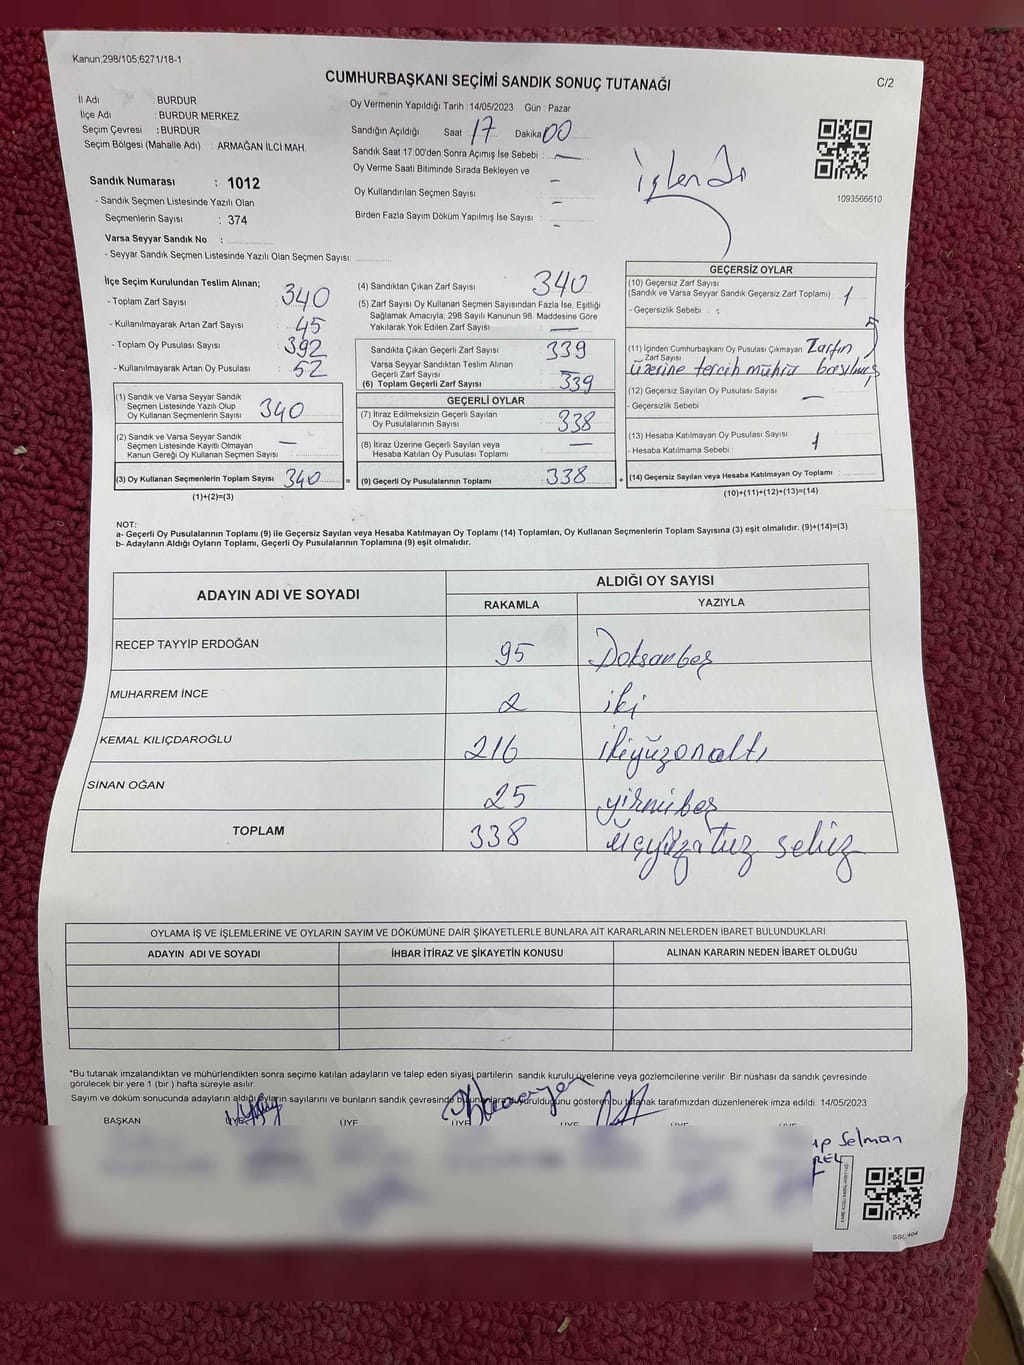 Kanun:298/105,6271/18-1
CUMHURBAŞKANI SEÇİMİ SANDIK SONUÇ TUTANAĞI
C/2
İl Adı : BURDUR
İlçe Adı : BURDUR MERKEZ
Seçim Çevresi : BURDUR
Seçim Bölgesi (Mahalle Adı) : ARMAĞAN İLCİ MAH.
Sandık Numarası : 1012
- Sandık Seçmen Listesinde Yazılı Olan
Seçmenlerin Sayısı : 374
Varsa Seyyar Sandık No :
- Seyyar Sandık Seçmen Listesinde Yazılı Olan Seçmen Sayısı:
Oy Vermenin Yapıldığı Tarih :14/05/2023 Gün : Pazar
Sandığın Açıldığı Saat : 17 Dakika 00
Sandık Saat 17:00'den Sonra Açımış İse Sebebi : —
Oy Verme Saati Bitiminde Sırada Bekleyen ve
Oy Kullandırılan Seçmen Sayısı : –
Birden Fazla Sayım Döküm Yapılmış İse Sayısı : –
İşlendi
1093566610
İlçe Seçim Kurulundan Teslim Alınan;
- Toplam Zarf Sayısı : 340
- Kullanılmayarak Artan Zarf Sayısı : 45
- Toplam Oy Pusulası Sayısı : 392
- Kullanılmayarak Artan Oy Pusulası : 52
(1) Sandık ve Varsa Seyyar Sandık
Seçmen Listesinde Yazılı Olup
Oy Kullanan Seçmenlerin Sayısı : 340
(2) Sandık ve Varsa Seyyar Sandık
Seçmen Listesinde Kayıtlı Olmayan
Kanun Gereği Oy Kullanan Seçmen Sayısı : —
(3) Oy Kullanan Seçmenlerin Toplam Sayısı : 340
(1)+(2)=(3)
(4) Sandıktan Çıkan Zarf Sayısı : 340
(5) Zarf Sayısı Oy Kullanan Seçmen Sayısından Fazla İse, Eşitliği
Sağlamak Amacıyla; 298 Sayılı Kanunun 98. Maddesine Göre
Yakılarak Yok Edilen Zarf Sayısı : —
Sandıkta Çıkan Geçerli Zarf Sayısı : 339
Varsa Seyyar Sandıktan Teslim Alınan
Geçerli Zarf Sayısı : —
(6) Toplam Geçerli Zarf Sayısı : 339
GEÇERLİ OYLAR
(7) İtiraz Edilmeksizin Geçerli Sayılan
Oy Pusulalarının Sayısı : 338
(8) İtiraz Üzerine Geçerli Sayılan veya
Hesaba Katılan Oy Pusulası Toplamı : —
= (9) Geçerli Oy Pusulalarının Toplamı : 338 +
GEÇERSİZ OYLAR
(10) Geçersiz Zarf Sayısı
(Sandık ve Varsa Seyyar Sandık Geçersiz Zarf Toplamı) : 1
- Geçersizlik Sebebi :
(11) İçinden Cumhurbaşkanı Oy Pusulası Çıkmayan Zarfın
Zarf Sayısı
üzerine tercih mührü basılmış
(12) Geçersiz Sayılan Oy Pusulası Sayısı : —
- Geçersizlik Sebebi :
(13) Hesaba Katılmayan Oy Pusulası Sayısı : 1
- Hesaba Katılmama Sebebi :
(14) Geçersiz Sayılan veya Hesaba Katılmayan Oy Toplamı :
(10)+(11)+(12)+(13)=(14)
NOT:
a- Geçerli Oy Pusulalarının Toplamı (9) ile Geçersiz Sayılan veya Hesaba Katılmayan Oy Toplamı (14) Toplamları, Oy Kullanan Seçmenlerin Toplam Sayısına (3) eşit olmalıdır. (9)+(14)=(3)
b- Adayların Aldığı Oyların Toplamı, Geçerli Oy Pusulalarının Toplamına (9) eşit olmalıdır.
ADAYIN ADI VE SOYADI ALDIĞI OY SAYISI
RAKAMLA YAZIYLA
RECEP TAYYİP ERDOĞAN 95 Doksanbeş
MUHARREM İNCE 2 iki
KEMAL KILIÇDAROĞLU 216 ikiyüzonaltı
SİNAN OĞAN 25 yirmibeş
TOPLAM 338 üçyüzotuz sekiz
OYLAMA İŞ VE İŞLEMLERİNE VE OYLARIN SAYIM VE DÖKÜMÜNE DAİR ŞİKAYETLERLE BUNLARA AİT KARARLARIN NELERDEN İBARET BULUNDUKLARI
ADAYIN ADI VE SOYADI İHBAR İTİRAZ VE ŞİKAYETİN KONUSU ALINAN KARARIN NEDEN İBARET OLDUĞU
*Bu tutanak imzalandıktan ve mühürlendikten sonra seçime katılan adayların ve talep eden siyasi partilerin sandık kurulu üyelerine veya gözlemcilerine verilir Bir nüshası da sandık çevresinde
görülecek bir yere 1 (bir ) hafta süreyle asılır.
Sayım ve döküm sonucunda adayların aldığı oyların sayılarını ve bunların sandık çevresinde duyurulduğunu gösteren bu tutanak tarafımızdan düzenlenerek imza edildi. 14/05/2023
BAŞKAN ÜYE ÜYE ÜYE ÜYE
Selman